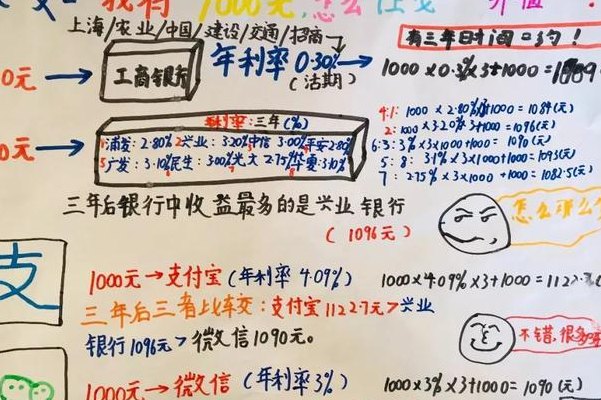 我有1000元,怎么
上海/农业/中国/建设/交通/招商
年利率0.30%
(活期)
有三年时间
0元
工商银行
1000×0.3%×3+1000=
年利率:三年(%)
浦发:2.80% 兴业:3.20% 中信 3.00% 平安2.80
广发:3.10% 民生:3.00% 光大 2.75% 华夏:3.10%
0元
4.1: 1000×2.80%×3+1000=1084(元)
2: 1000×3.20%×3+1000=1096(元)
6:3: 3%×3×1000+1000=1090(元)
5:8: 3.1%×3×1000+1000=1093元)
7: 2.75%×3×1000+1000=1082.5(元)
三年后银行中收益最多的是兴业银行
(1096元)
怎么
支
1000元→支付宝(年利率4.09%)
1000×4.09%×3+1000=1122.7
三年后三者比较:支付宝1122.7元>兴业
银行1096元>微信1090元。
不错,很多
1000元→微信(年利率3%)
1000×3%×3+1000=1090(元)